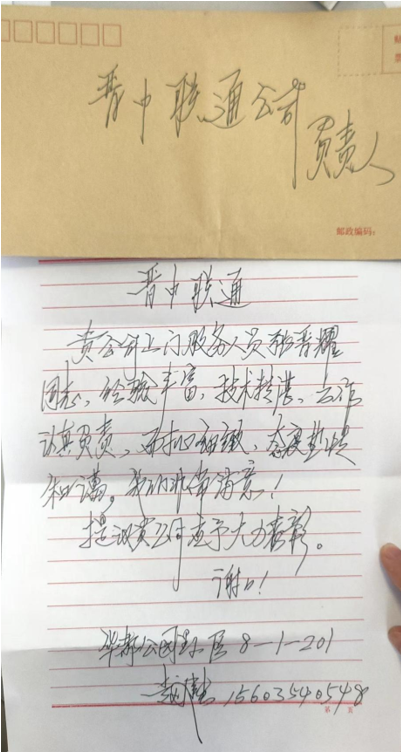 晋中联通公司
负责人
邮政编码:
晋中联通
贵公司上门服务人员张晋耀
同志、经验丰富,技术精湛、工作
认真负责、而扣细致、态度热情
和谒。我们非常满意!
提议贵公司应予大力表彰。
谢谢!
华都公园 8-1-201
15603540548
第 页